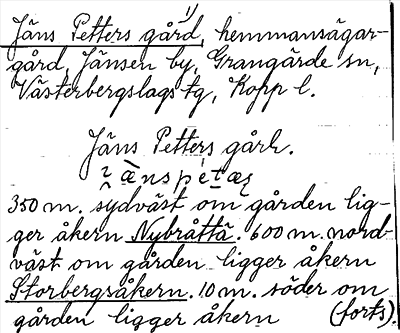 1)
Jäns Petters gård, hemmansägar-
gård, Jänsen by, Grangärde sn,
Västerbergslags tg, Kopp l.
Jäns Petters gård.
350 m. sydväst om gården lig-
ger åkern Nybråttå. 600 m. nord-
väst om gården ligger åkern
Storbergsåkern. 10 m. söder om
gården ligger åkern (forts).